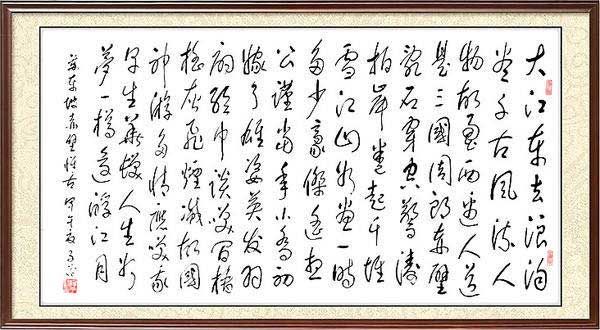 大江東去浪淘
盡千古風流人
物故壘西邊人道
是三國周郎赤壁
亂石穿空驚濤
拍岸卷起千堆
雪江山如畫一時
多少豪傑遙想
公瑾當年小喬初
嫁了雄姿英發羽
扇綸巾談笑間檣
櫓灰飛煙滅故國
神游多情應笑我
早生華髮人生如
夢一樽還酹江月
東坡赤壁懷古甲午夏